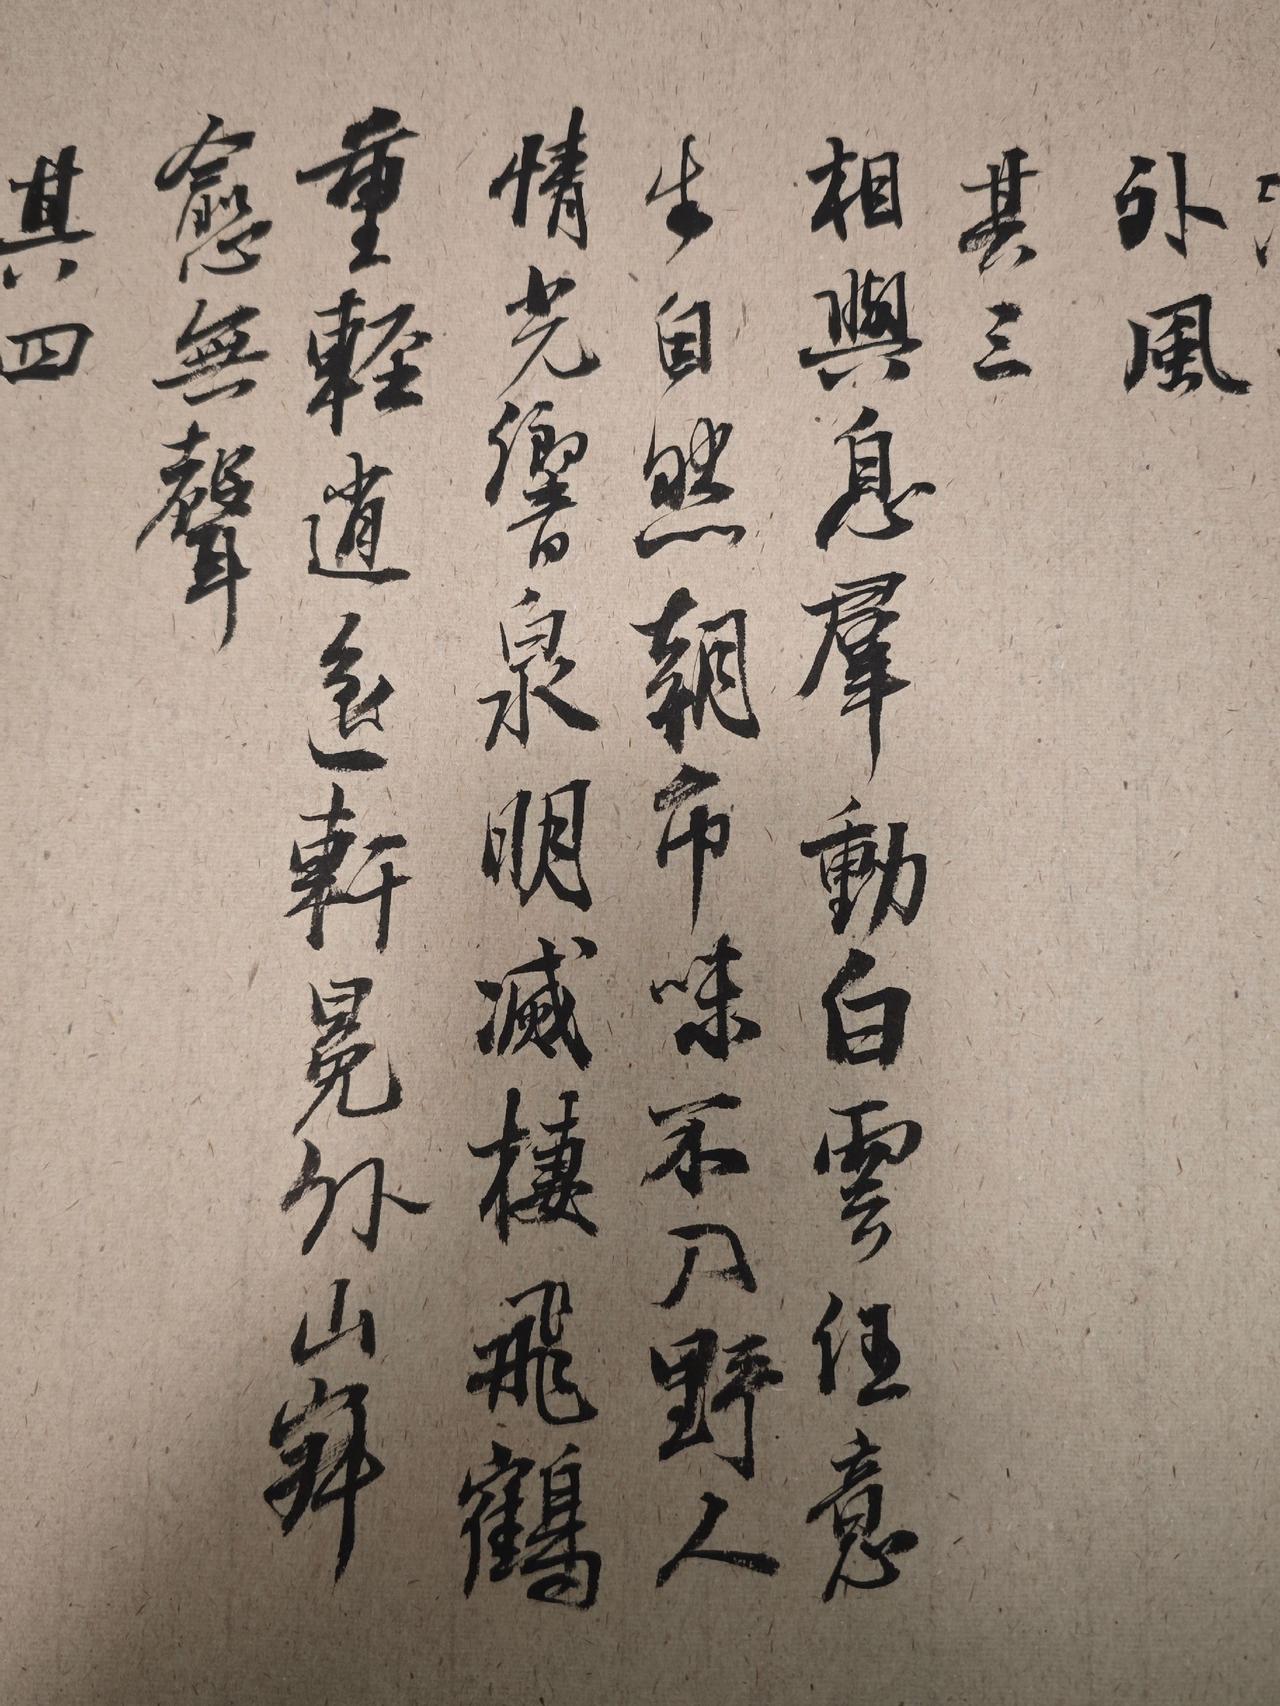 外風
其三
相與息羣動白雲任意
生自然朝市味不入野人
情光響泉明滅棲飛鶴
重輕逍遙軒冕外山
愈無聲
其四